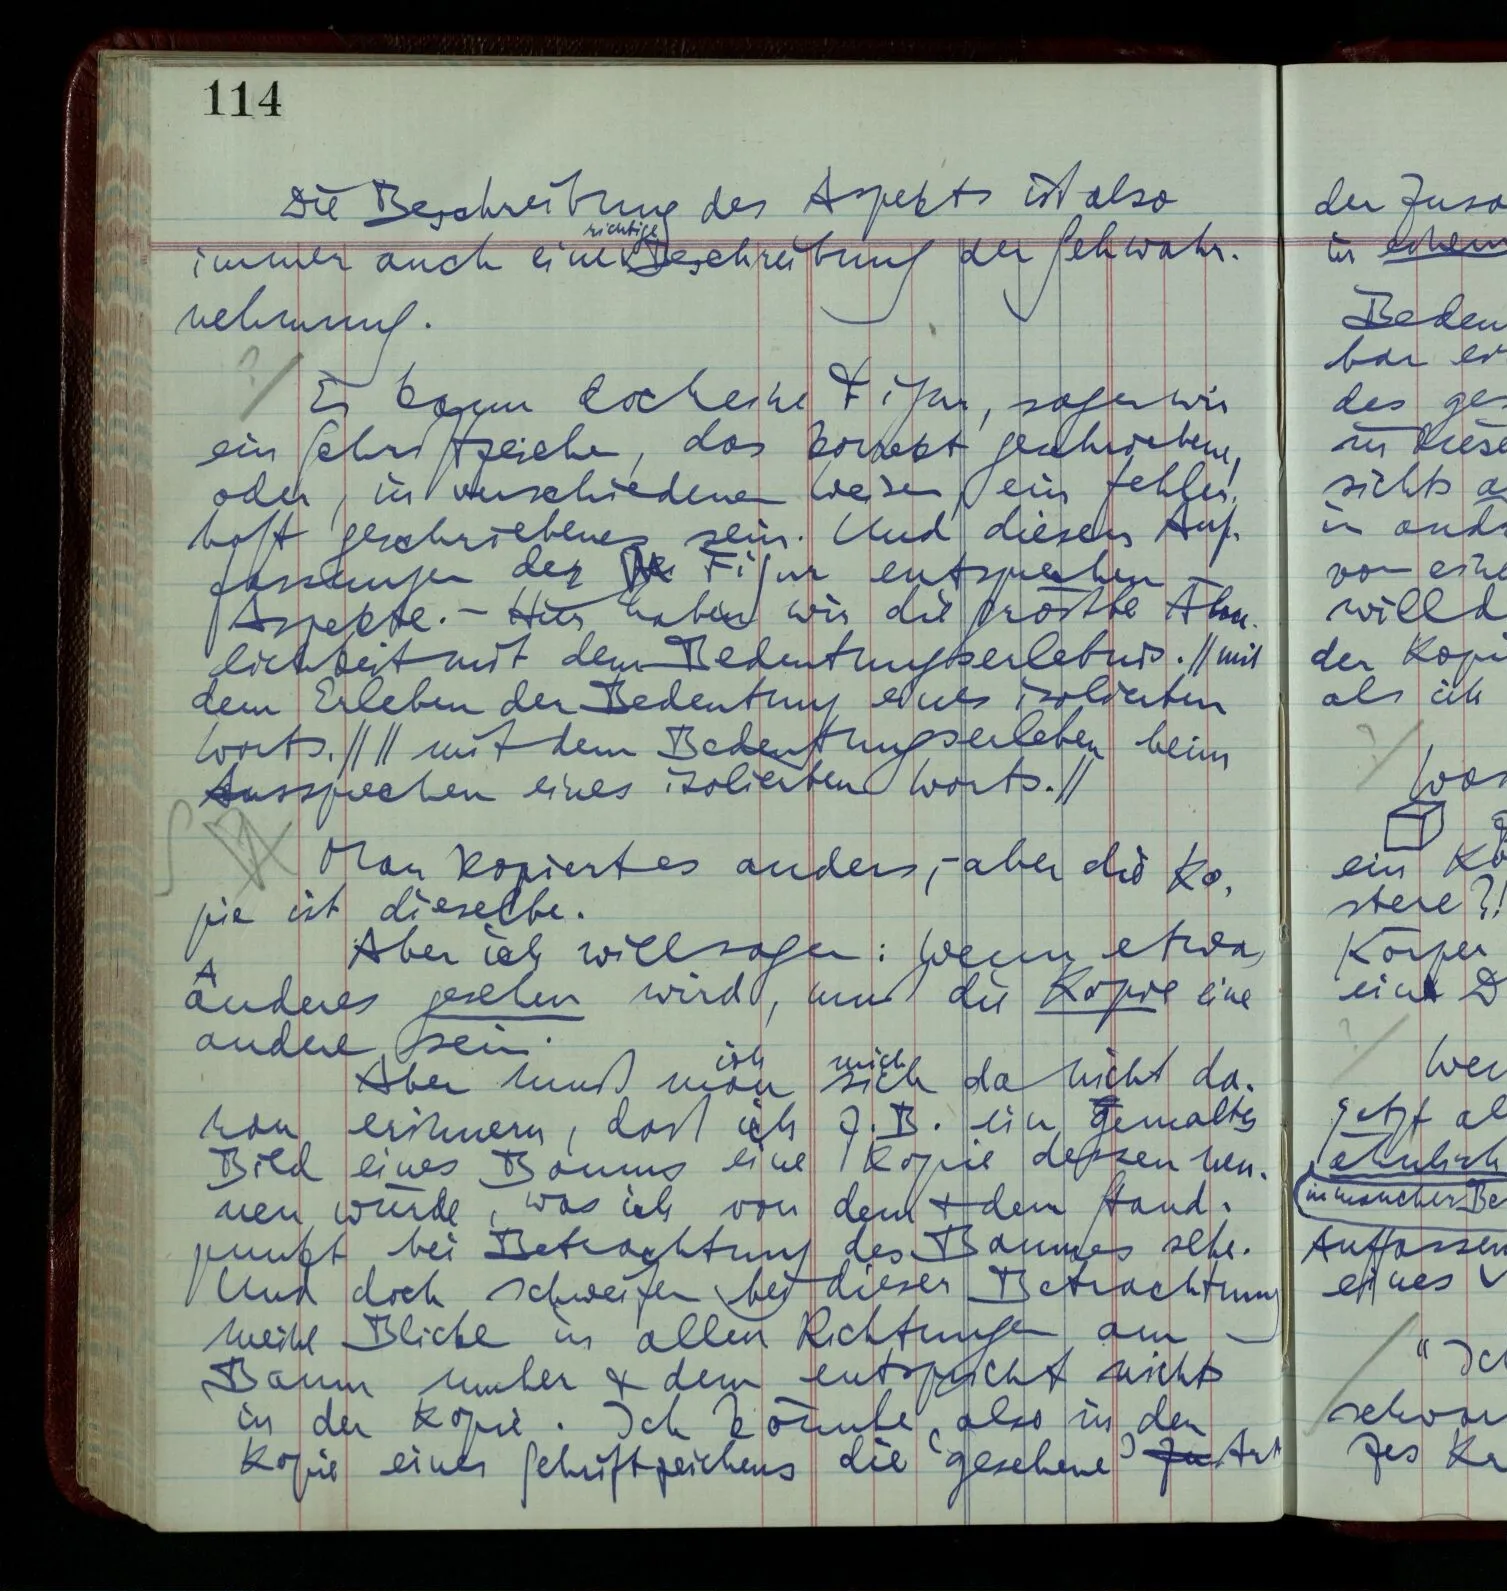 114
Die Beschreibung des Aspekts ist also
richtige
immer auch eine Beschreibung der Sehwahr-
nehmung.
?/
Es kann doch eine Figur, sagen wir
ein Schriftzeichen, das korrekt geschriebene,
oder, in verschiedenen Weisen, ein fehler-
haft geschriebenes sein. Und diesen Auf-
fassungen der Figur entsprechen
Aspekte. – Hier haben wir die größte Ähn-
lichkeit mit dem Bedeutungserlebnis. // mit
dem Erleben der Bedeutung eines isolierten
Worts. // // mit dem Bedeutungserleben beim
Aussprechen eines isolierten Worts. //
Man kopiert es anders, – aber die Ko-
pie ist dieselbe.
Aber ich will sagen: Wenn etwas
Anderes gesehen wird, muß die Kopie eine
andere sein.
ich mich
Aber muß man sich da nicht da-
ran erinnern, daß ich z.B. ein gemaltes
Bild eines Baums eine Kopie dessen nen-
nen würde, was ich von dem & dem Stand-
punkt bei Betrachtung des Baumes sehe.
Und doch schweifen bei dieser Betrachtung
meine Blicke in allen Richtungen am
Baum umher & dem entspricht nichts
in der Kopie. Ich könnte also in der
Kopie eines Schriftzeichens die 'gesehene' Art
der
in einem
bar
des
in diese
sichts
in
von eine
will
der
als ich
?/
ein
stere?!
Körper
eine D
?/
jetzt al
ähnlich
in mancher Be
Auffassen
eines
"Ich